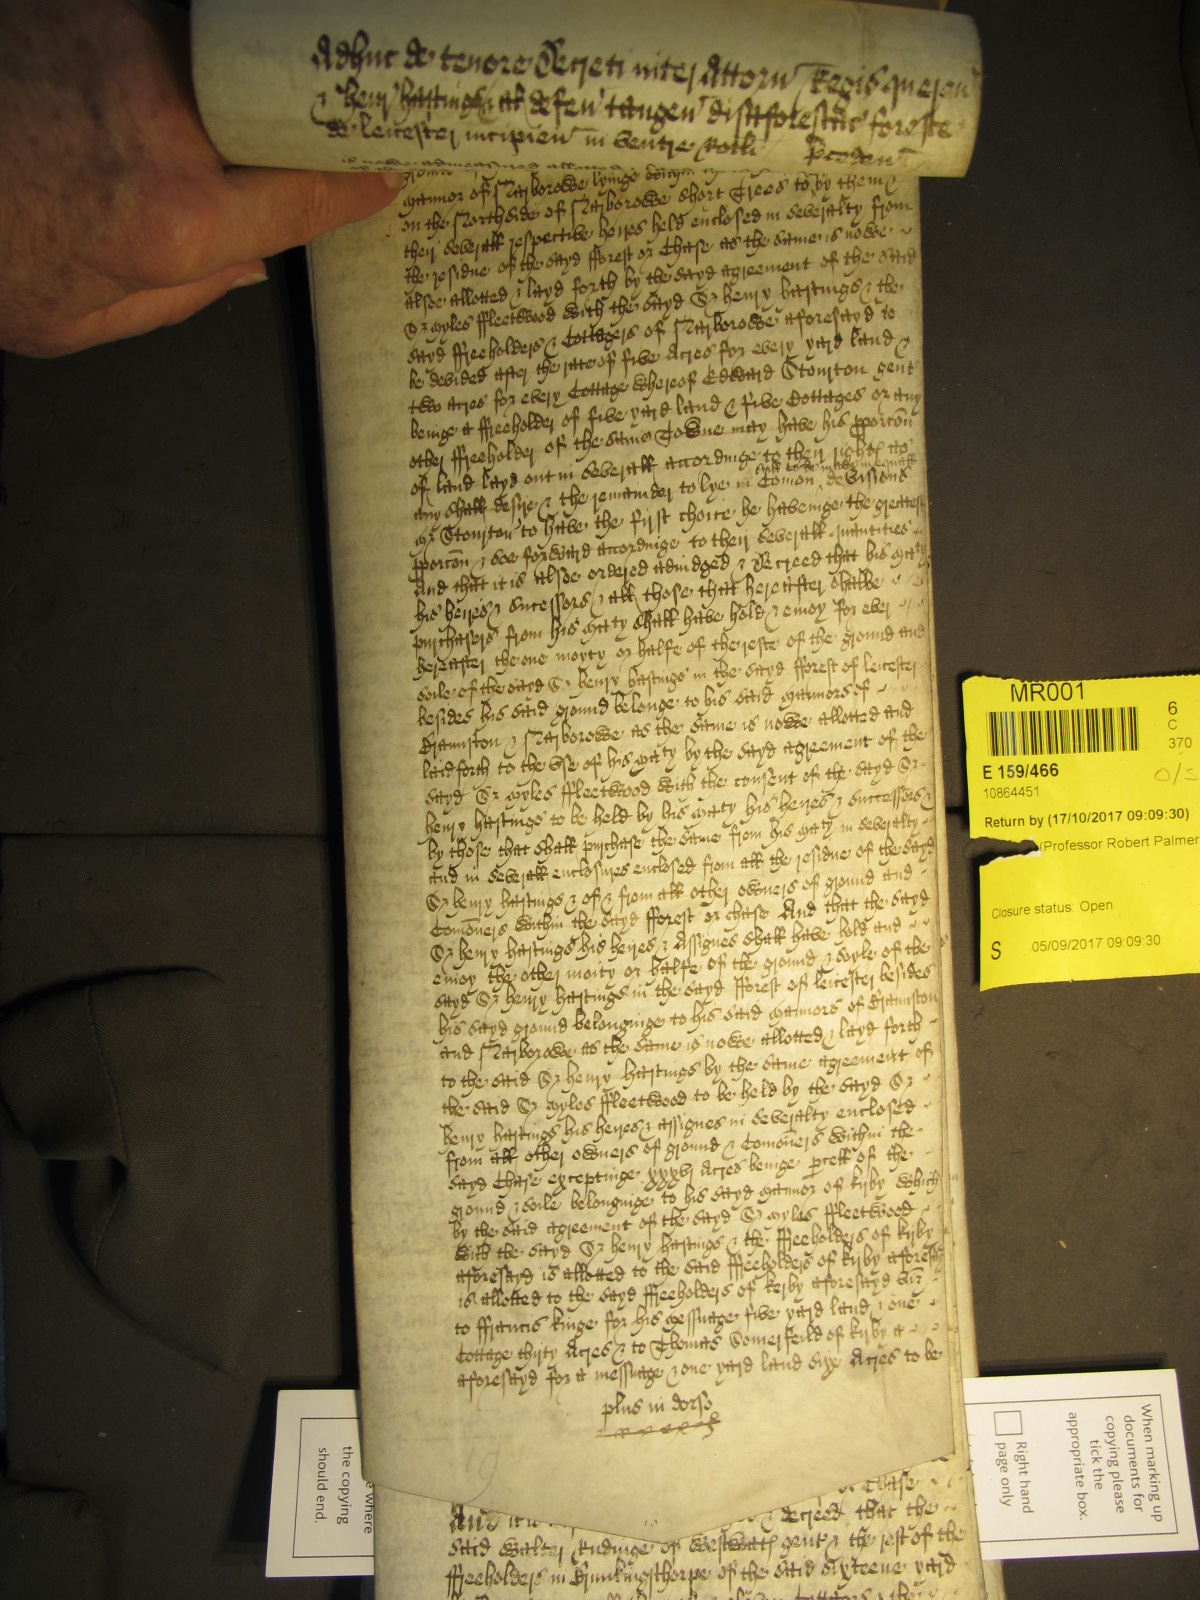 Adhuc de tenore Decreti inter Attorn Regis queren
& Henr Hastings ar defen tangen disafforestac foreste
de Leicester incipien in ventre Rotli Preden
mannor of Narborowe lyinge within
on the Northside of Narborowe short Trees to by them &
their severall respective heires held enclosed in severalty from
the residue of the sayd fforest or Chase as the same is nowe
alsoe allotted & layd forth by the sayd agreement of the said
Sr Myles ffleetwood with the sayd Sr Henry Hastings & the
sayd ffreeholders & Cottagers of Narborowe aforesayd to
be devided after the rate of five Acres for every yard land &
two acres for every Cottage whereof Edward Stonrton gent
beinge a ffreeholder of five yard land & five Cottages or any
other ffreeholder of the same Towne may have his pporcon
of land layd out in severall accordinge to their rights as
any shall desire & the remainder to lye in Comon devisions
Mr Stonrton to have the first choice he havinge the greatest
pporcon & soe forward accordinge to their severall quantities
And that it is alsoe ordered adiudged & Decreed that his Maty
his heires & successors & all those that hereafter shalbe
purchasers from his Maty shall have hold & enioy for ever
hereafter the one moyty or halfe of the reste of the ground and
soile of the sayd Sr Henry Hastings in the sayd fforest of Leicester
besides his said ground belonge to his said Mannors of
Braunston & Narborowe as the same is nowe allotted and
laid forth to the use of his Maty by the sayd agreement of the
sayd Sr Myles ffleetwood with the consent of the sayd Sr
Henry Hastings to be held by his Maty his heires & successors &
by those that shall purchase the same from his Maty in severalty
and in severall enclosures enclosed from all the residue of the sayd
Sr Henry Hastings & of & from all other owners of ground and
Comoners within the sayd fforest or chase And that the sayd
Sr Henry Hastings his heires & Assignes shall have hold and
enioy the other moity or halfe of the ground & soyle of the
sayd Sr Henry Hastings in the sayd fforest of Leicester besides
his sayd ground belonginge to his said Mannors of Braunston
and Narborowe as the same is nowe allotted & layd forth
to the said Sr Henry Hastings by the same agreement of
the said Sr Myles ffleetwood to be held by the sayd Sr
Henry Hastings his heires & assignes in severalty enclosed
from all other owners of ground & Comoners within the
sayd Chase exceptinge xxxvi Acres beinge pcell of the
ground & soile belonginge to his sayd Mannor of Kirby which
by the said agreement of the sayd Sr Myles ffleetwood
with the sayd Sr Henry Hastings & the ffreeholders of Kirby
aforesayd is allotted to the said ffreeholders of Kirby aforesayd
is allotted to the sayd ffreeholders of Kerby aforesayd viz
to ffrancis Kinge for his messuage five yard land & one
Cottage thirty Acres & to Thomas Somerfeild of Kirby
aforesayd for a messuage & one yard land sixe Acres to be
plus in dorso
19
Chase
And decreed that the
said Walter Rudinge of Westwath gent & the rest of the
ffreeholders in Brunkingsthorpe of the said sixteene yard
MR001
6
C
370
E 159/466
O/S
10864451
Return by (17/10/2017 09:09:30)
(Professor Robert Palmer
Closure status: Open
S 05/09/2017 09:09:30
where
the copying
should end.
When marking up
documents for
copying please
tick the
appropriate box.
Right hand
page only